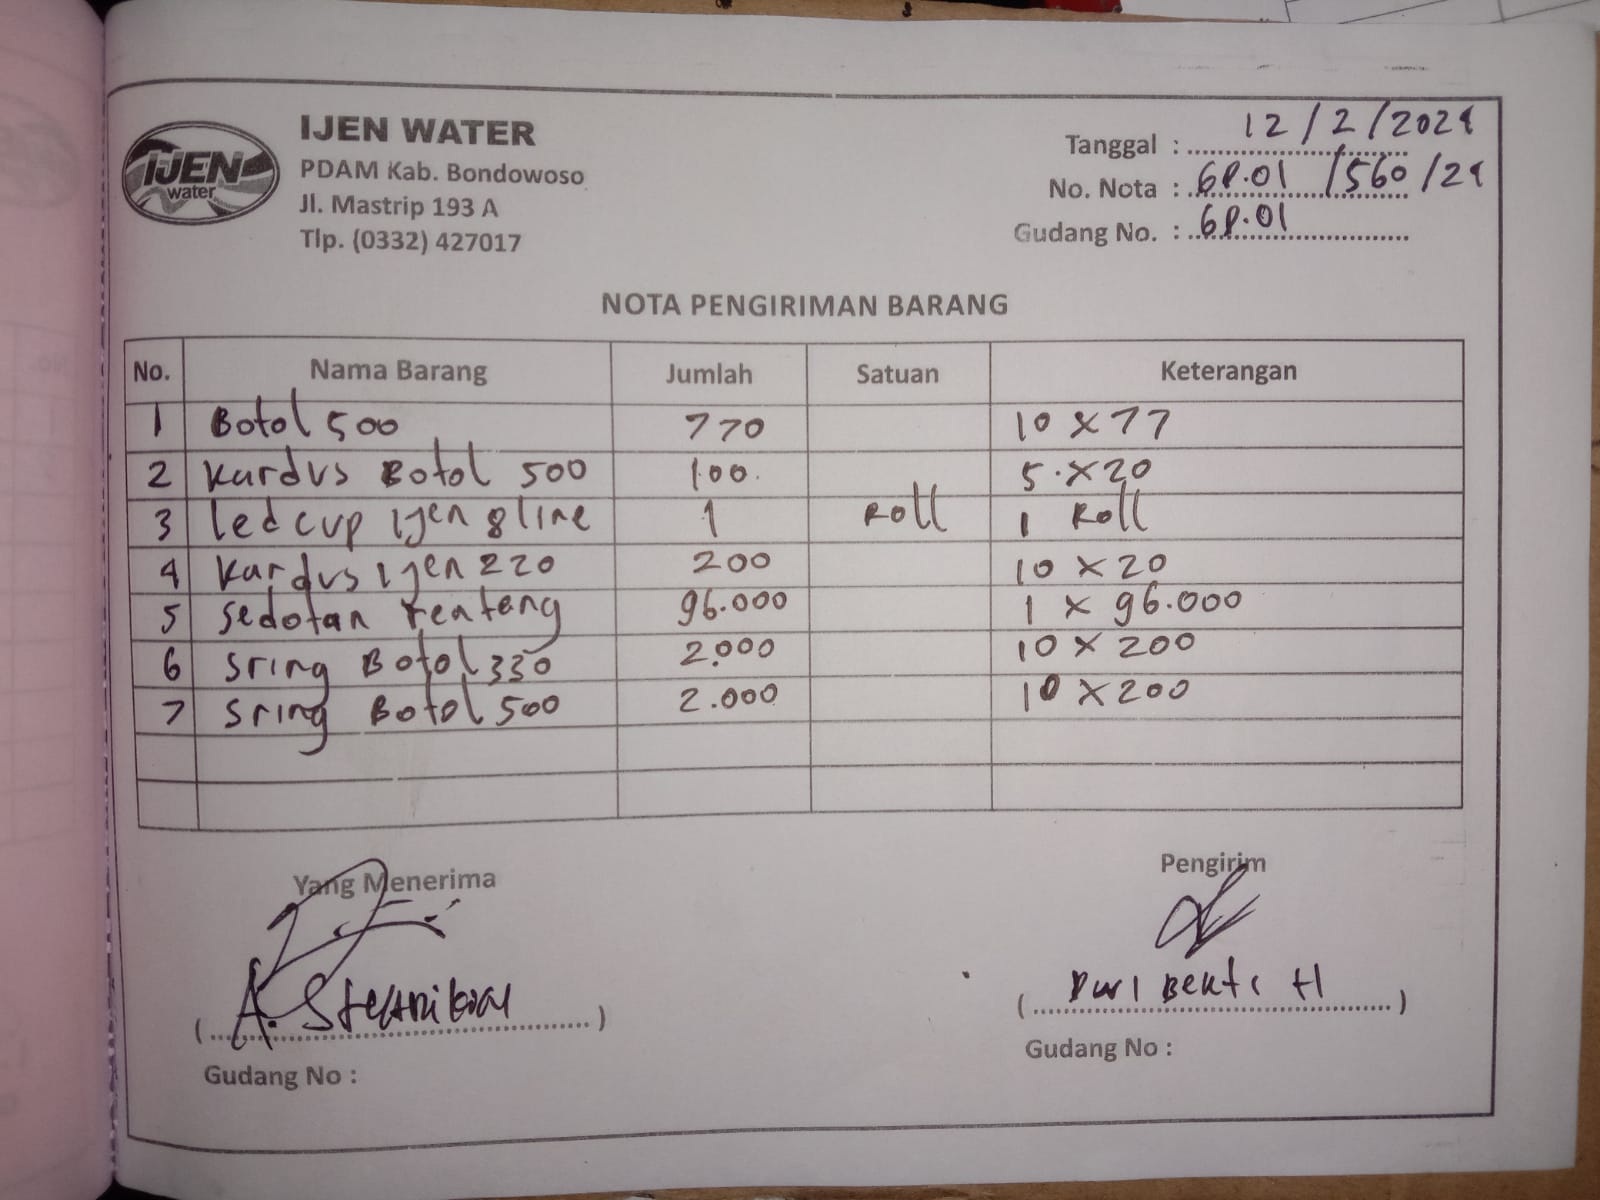 IJEN
water
IJEN WATER
PDAM Kab. Bondowoso
Jl. Mastrip 193 A
Tlp. (0332) 427017
Tanggal : 12/2/2024
No. Nota : GP.01 /560/24
Gudang No. : GP.01
NOTA PENGIRIMAN BARANG
No. Nama Barang Jumlah Satuan Keterangan
1 Botol 500 770 10 x 77
2 Kardus Botol 500 100. 5.x20
3 Led cup Ijen 8 line 1 Roll 1 Roll
4 Kardus Ijen 220 200 10 x 20
5 Sedotan Tentang 96.000 1 x 96.000
6 Sring Botol 330 2.000 10 x 200
7 Sring Botol 500 2.000 10 x 200
Yang Menerima
Pengirim
( A. )
( H )
Gudang No :
Gudang No :